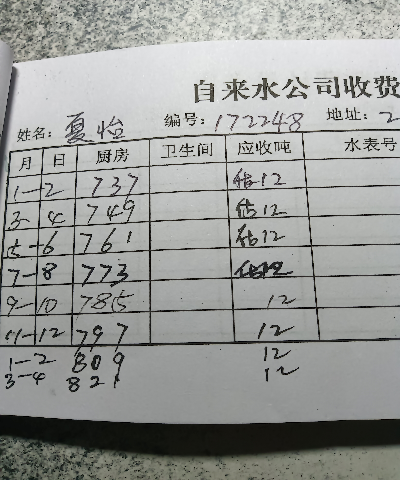 自来水公司收费
姓名: 夏怡 编号: 172248 地址: 2
月 日 厨房 卫生间 应收吨 水表号
1-2 737 估12
3-4 749 估12
5-6 761 估12
7-8 773 估12
9-10 785 12
11-12 797 12
1-2 809 12
3-4 821 12